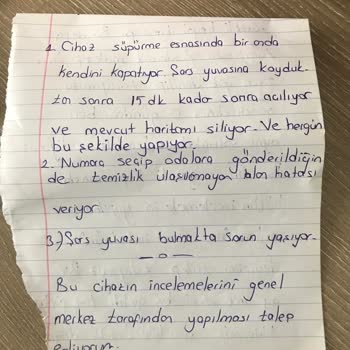 1. Cihaz süpürme esnasında bir anda
kendini kapatıyor. Şarj yuvasına koyduk-
tan sonra 15 dk kadar sonra açılıyor
ve mevcut haritamı siliyor. Ve hergün
bu şekilde yapıyor.
2. Numara seçip odalara gönderildiğin
de temizlik ulaşılamayan alan hatası
veriyor.
3.) Şarj yuvası bulmakta sorun yaşıyor.
Bu cihazın incelemelerini genel
merkez tarafından yapılması talep
ediyorum.